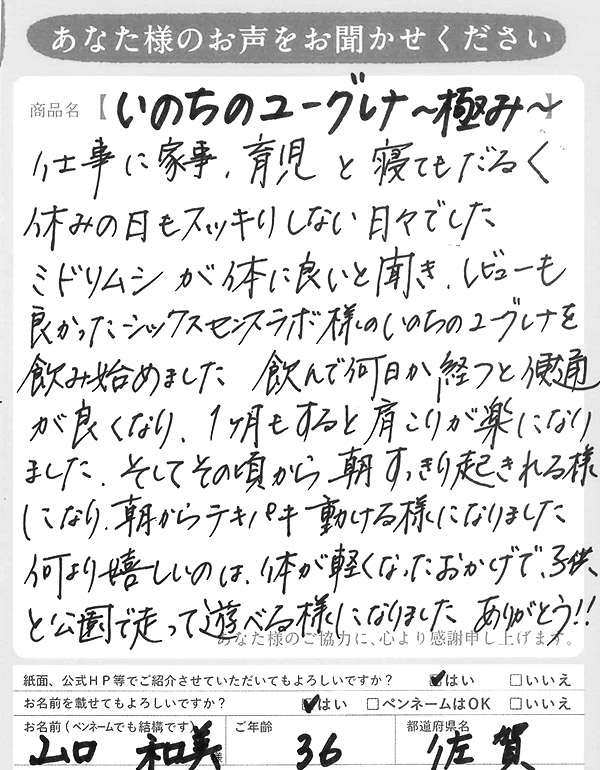 あなた様のお声をお聞かせください
商品名【いのちのユーグレナ～極み～】
仕事に家事、育児と寝てもだるく
休みの日もスッキリしない日々でした
ミドリムシが体に良いと聞き、レビューも
良かったシックスセンスラボ様のいのちのユーグレナを
飲み始めました 飲んで何日か経つと便通
が良くなり、1ヶ月もすると肩こりが楽になり
ました。そしてその頃から朝すっきり起きれる様
になり、朝からテキパキ動ける様になりました
何より嬉しいのは、体が軽くなったおかげで、子供
と公園で走って遊べる様になりました ありがとう!!
あなた様のご協力に、心より感謝申し上げます。
紙面、公式HP等でご紹介させていただいてもよろしいですか? ☑はい □いいえ
お名前を載せてもよろしいですか? ☑はい □ペンネームはOK □いいえ
お名前(ペンネームでも結構です) ご年齢 都道府県名
山口 和美 様 36 佐賀